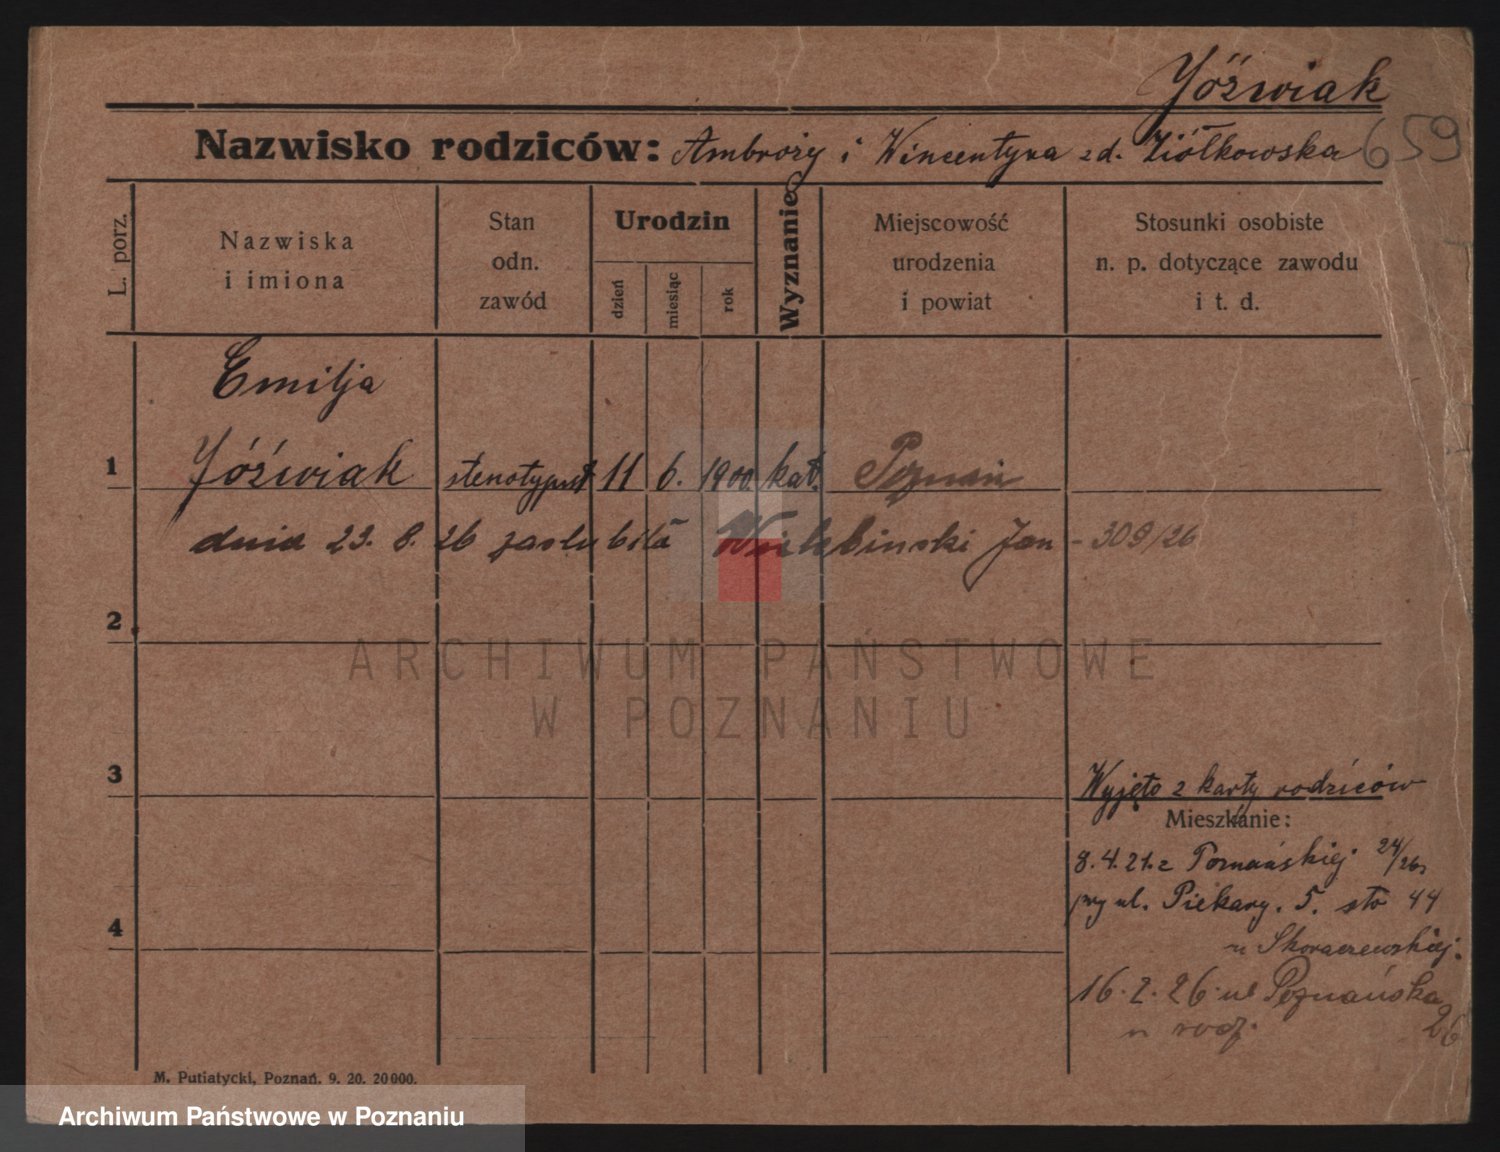 Jóźwiak
659
Nazwisko rodziców: Ambroży i Wincentyna z d. Ziółkowska
L. porz.
Nazwiska i imiona
Stan odn. zawód
Urodzin
dzień
miesiąc
rok
Wyznanie
Miejscowość urodzenia i powiat
Stosunki osobiste n. p. dotyczące zawodu i t. d.
Emilja
1 Jóźwiak stenotypist 11 6. 1900. kat. Poznań
dnia 23. 8. 26 zaślubiła Wielebinski Jan - 309/26
2
3
Wyjęto z karty rodziców
Mieszkanie:
8.4.21. z Poznańskiej 24/26,
przy ul. Piekary. 5. sto 44
4
u Skoraczewskiej.
16.2.26 ul Poznańska
26
u rodz.
M. Putiatycki, Poznań. 9. 20. 20000.
ARCHIWUM PAŃSTWOWE
W POZNANIU
Archiwum Państwowe w Poznaniu